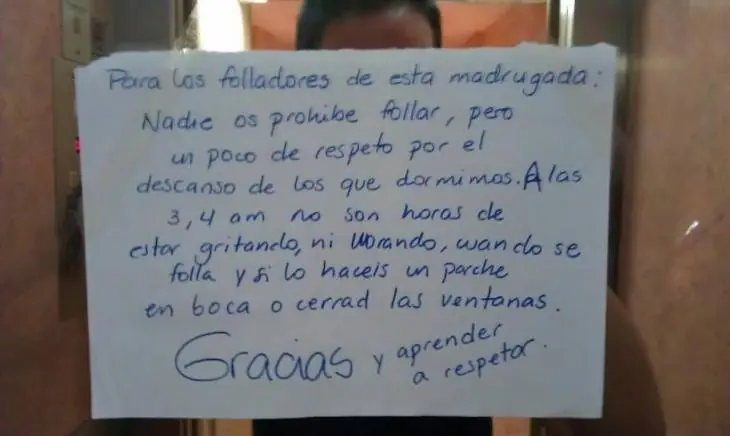 Para los folladores de esta madrugada:
Nadie os prohibe follar, pero
un poco de respeto por el
descanso de los que dormimos. A las
3, 4 am no son horas de
estar gritando, ni llorando, cuando se
folla y si lo haceis un parche
en boca o cerrad las ventanas.
Gracias y aprender
a respetar.